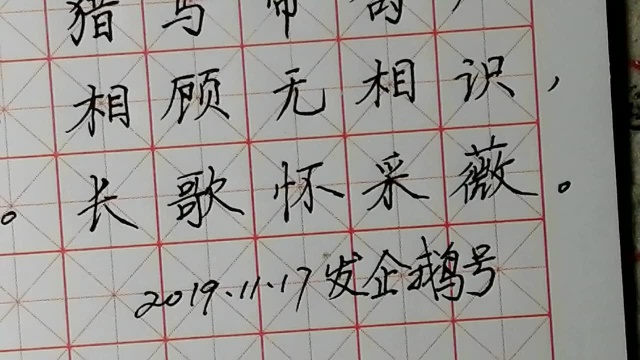 猎马带禽
相顾无相识，
。长歌怀采薇。
2019.11.17发企鹅号